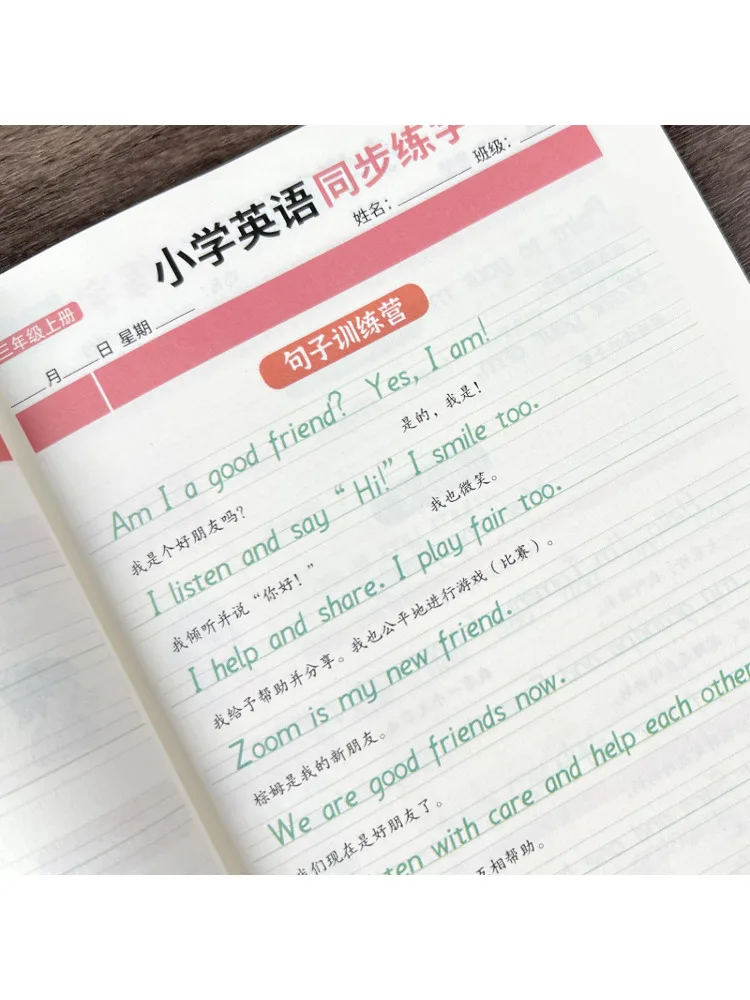 小学英语同步练字
姓名：
班级：
三年级上册
月 日 星期
句子训练营
Am I a good friend? Yes, I am!
我是个好朋友吗？ 是的，我是！
I listen and say “Hi!” I smile too.
我倾听并说“你好！” 我也微笑。
I help and share. I play fair too.
我给予帮助并分享。我也公平地进行游戏（比赛）。
Zoom is my new friend.
棕姆是我的新朋友。
We are good friends now.
我们现在是好朋友了。
with care and help each other
互相帮助。